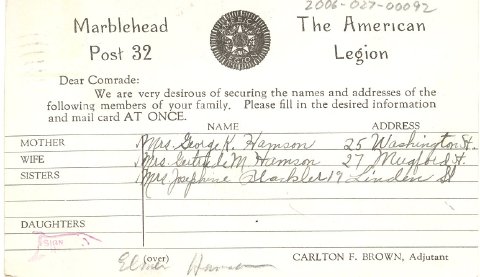 2006-027-00092
Marblehead The American
Post 32 Legion
Dear Comrade:
We are very desirous of securing the names and addresses of the
following members of your family. Please fill in the desired information
and mail card AT ONCE.
NAME ADDRESS
MOTHER Mrs. George K. Hamson 25 Washington St.
WIFE Mrs. M. Hamson 27 Mugford St.
SISTERS Mrs Josephine Blackler 19 Linden St
DAUGHTERS
(over) CARLTON F. BROWN, Adjutant
Elmer